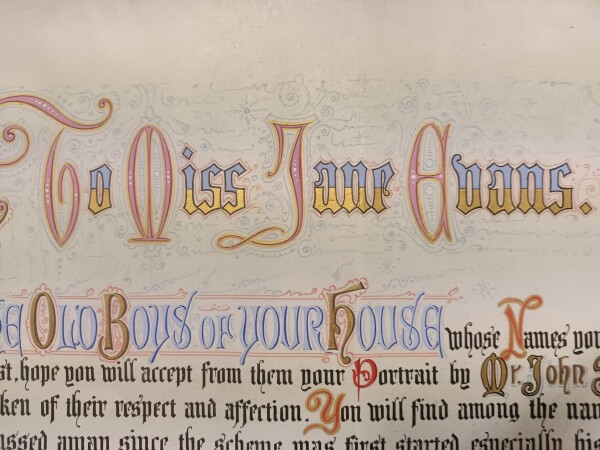 To Miss Jane Evans.
Old Boys of your House whose Names you
hope you will accept from them your Portrait by Mr John
of their respect and affection. You will find among the
since the scheme was first started especially his